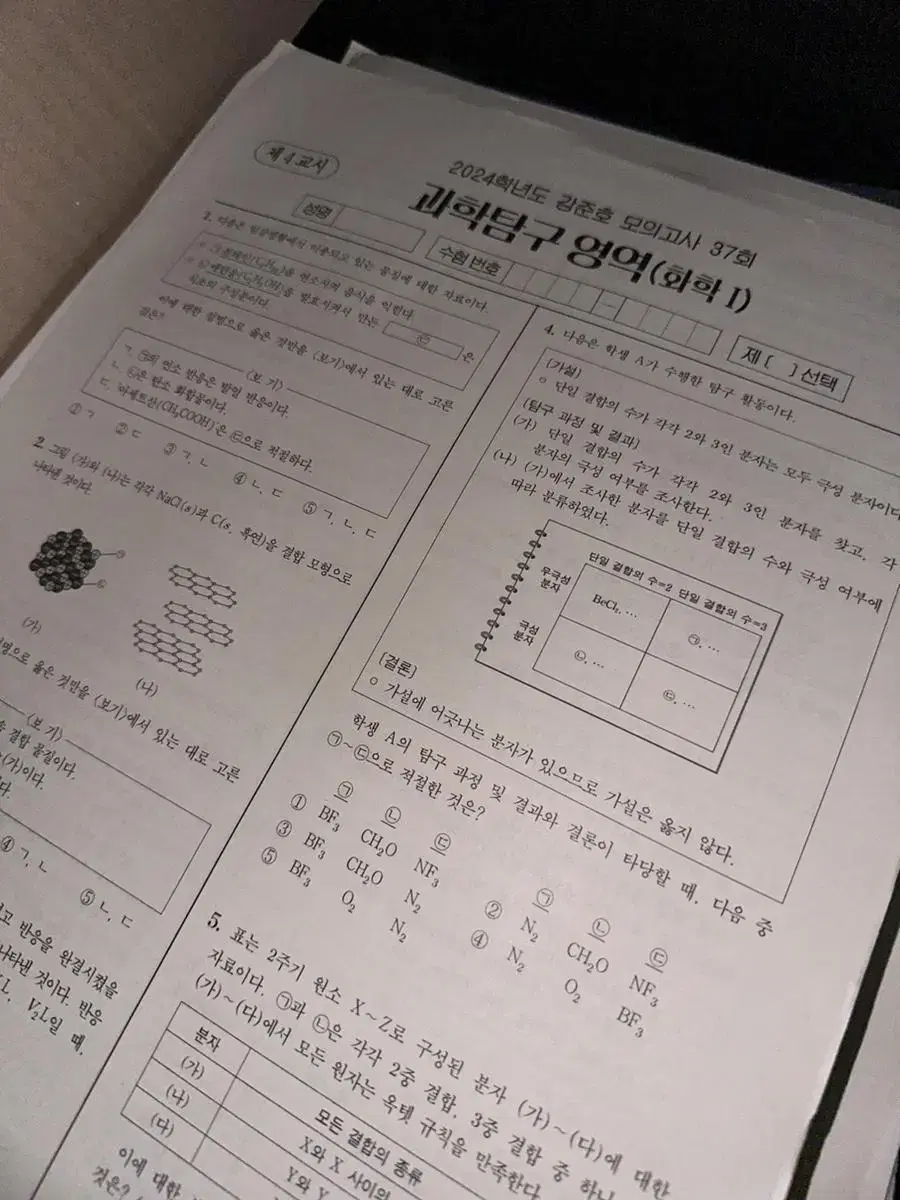 제 4 교시
2024학년도 강준호 모의고사 37회
과학탐구 영역(화학 I)
성명
수험 번호
제 [ ] 선택
1. 다음은 일상생활에서 이용되고 있는 물질에 대한 자료이다.
을 연소시켜 음식을 익힌다.
에탄올(C₂H₅OH)을 발효시켜서 만든 ㉢은
식초의 구성분이다.
이에 대한 설명으로 옳은 것만을 <보기>에서 있는 대로 고른
것은?
<보 기>
ㄱ. ㉠의 연소 반응은 발열 반응이다.
ㄴ. ㉡은 탄소 화합물이다.
ㄷ. '아세트산(CH₃COOH)'은 ㉢으로 적절하다.
① ㄱ ② ㄷ ③ ㄱ, ㄴ ④ ㄴ, ㄷ ⑤ ㄱ, ㄴ, ㄷ
2. 그림 (가)와 (나)는 각각 NaCl(s)과 C(s, 흑연)을 결합 모형으로
나타낸 것이다.
(가)
(나)
설명으로 옳은 것만을 <보기>에서 있는 대로 고른
<보 기>
결합 물질이다.
(가)이다.
다.
④ ㄱ, ㄴ ⑤ ㄴ, ㄷ
고 반응을 완결시켰을
나타낸 것이다. 반응
L, V₂L일 때,
4. 다음은 학생 A가 수행한 탐구 활동이다.
[가설]
○ 단일 결합의 수가 각각 2와 3인 분자는 모두 극성 분자이다
[탐구 과정 및 결과]
(가) 단일 결합의 수가 각각 2와 3인 분자를 찾고, 각
분자의 극성 여부를 조사한다.
(나) (가)에서 조사한 분자를 단일 결합의 수와 극성 여부에
따라 분류하였다.
단일 결합의 수=2 단일 결합의 수=3
무극성
분자
BeCl₂, … ㉠, …
극성
분자
㉡, … ㉢, …
[결론]
○ 가설에 어긋나는 분자가 있으므로 가설은 옳지 않다.
학생 A의 탐구 과정 및 결과와 결론이 타당할 때, 다음 중
㉠~㉢으로 적절한 것은?
㉠ ㉡ ㉢ ㉠ ㉡ ㉢
① BF₃ CH₂O NF₃ ② N₂ CH₂O NF₃
③ BF₃ CH₂O N₂ ④ N₂ O₂ BF₃
⑤ BF₃ O₂ N₂
5. 표는 2주기 원소 X~Z로 구성된 분자 (가)~(다)에 대한
자료이다. ㉠과 ㉡은 각각 2중 결합, 3중 결합 중 하나
(가)~(다)에서 모든 원자는 옥텟 규칙을 만족한다.
분자 모든 결합의 종류
(가) X와 X 사이의
(나) Y와 Y
(다)
이에 대한
것은?